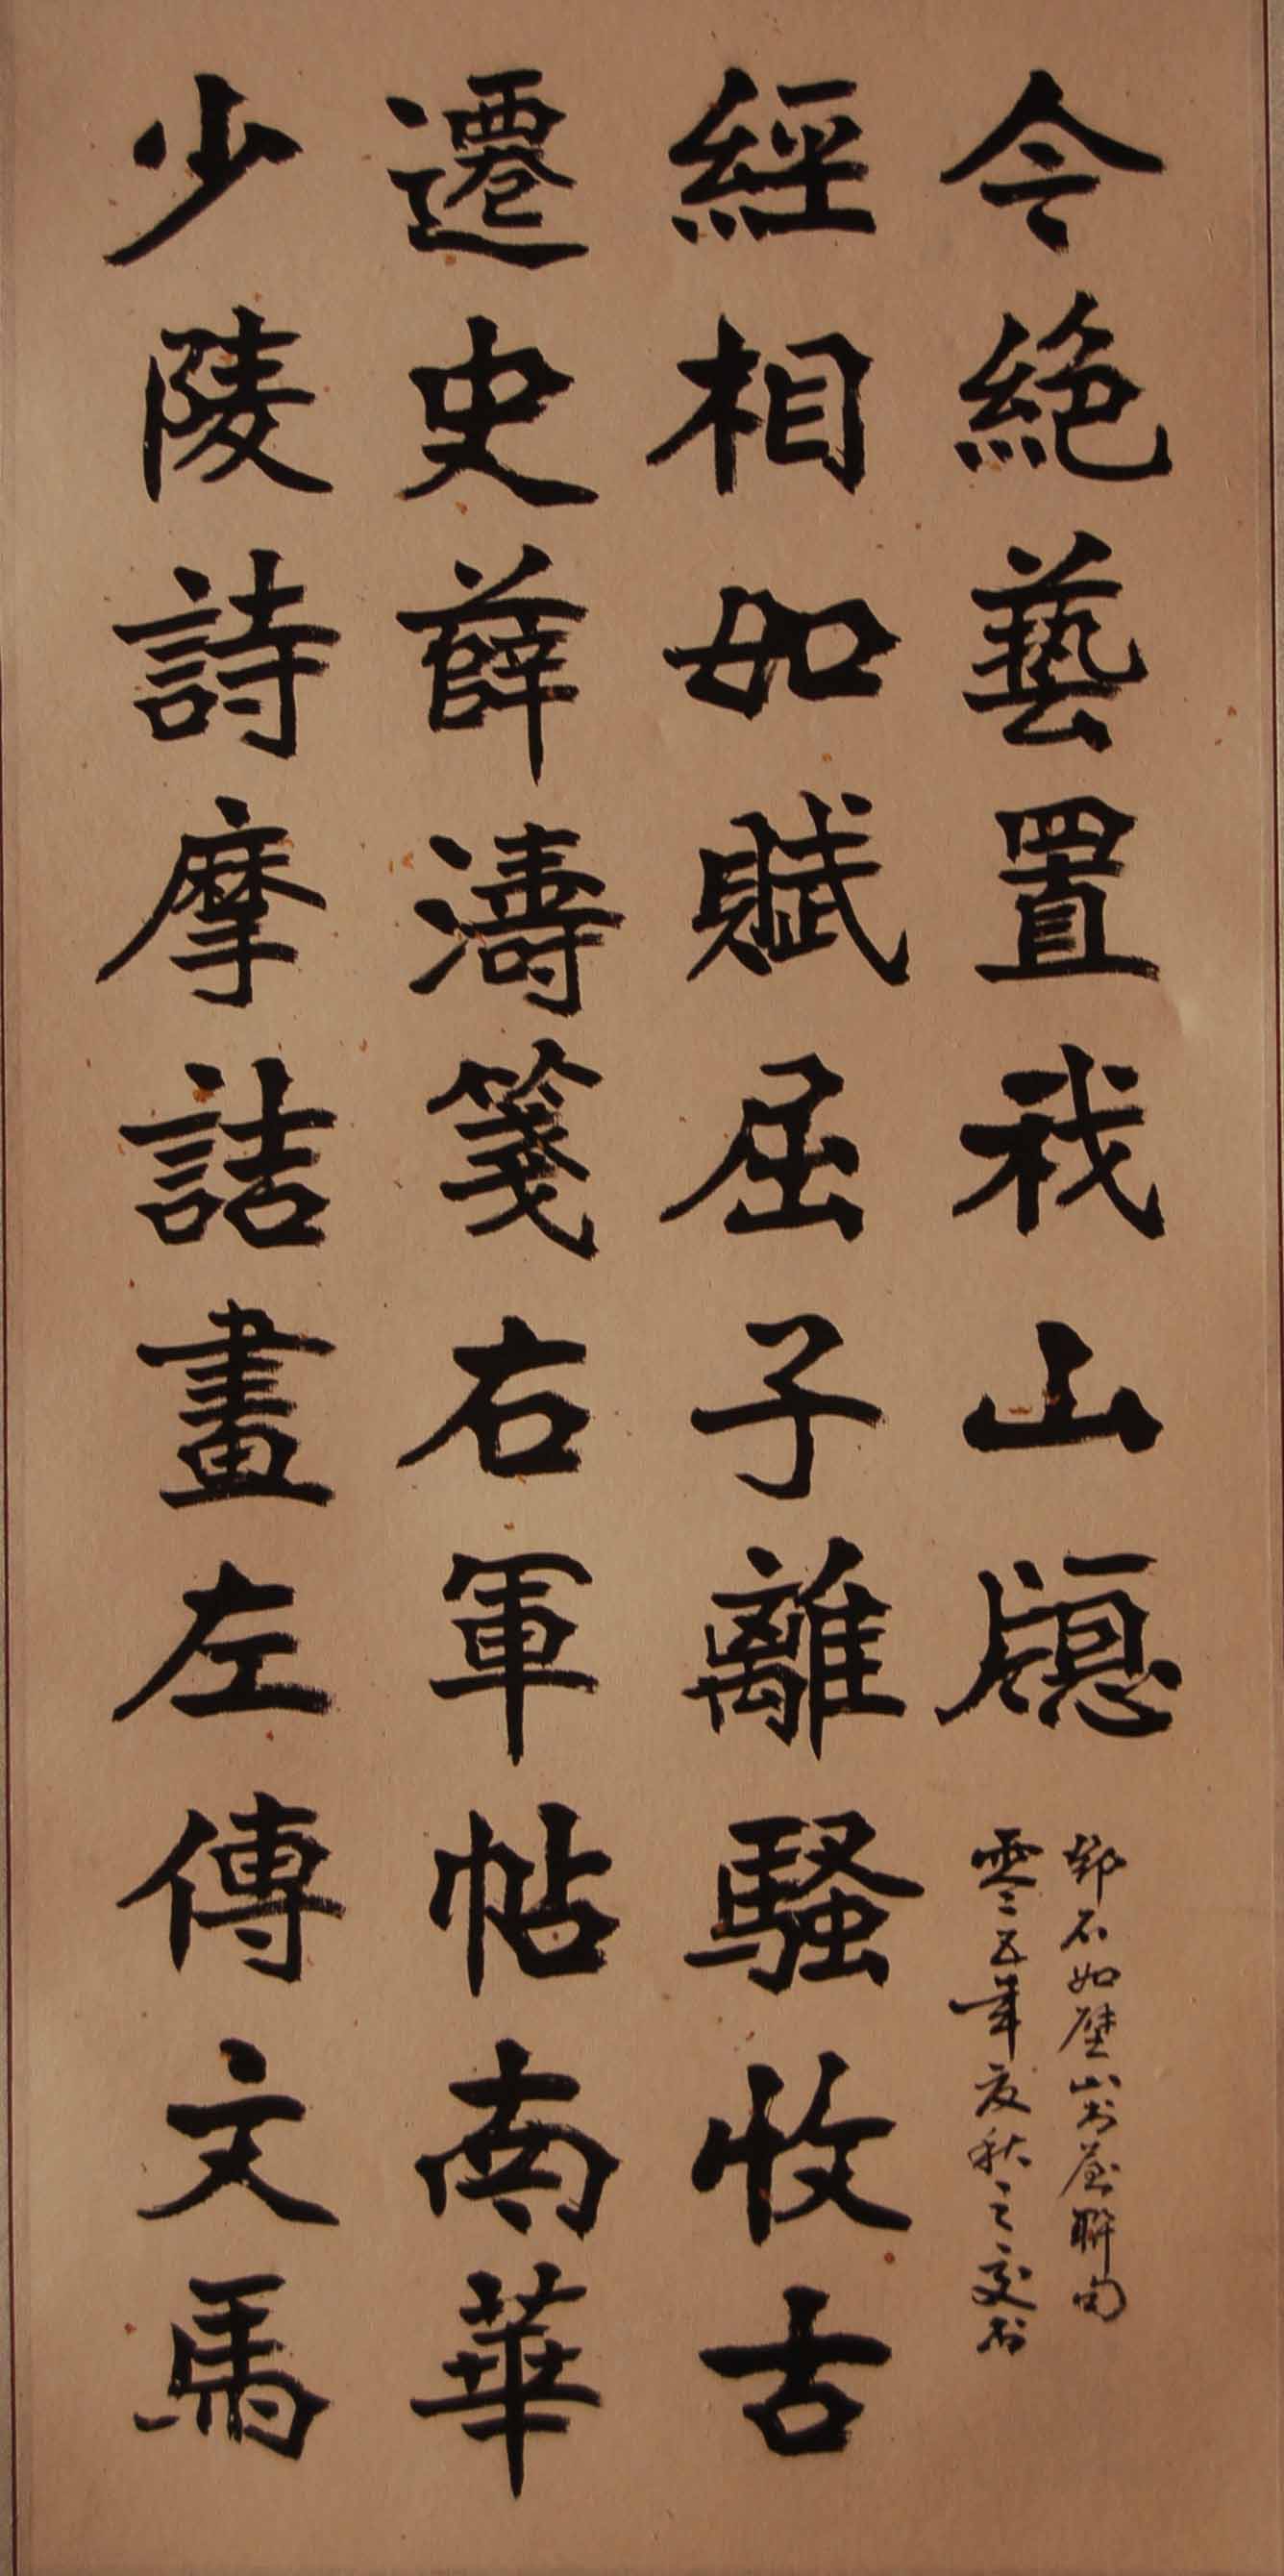 少陵詩摩詰畫左傳文馬
遷史薛濤箋右軍帖南華
經相如賦屈子離騷收古
今絕藝置我山牕
鄧石如壁山书屋聯句
五年夏秋之交书